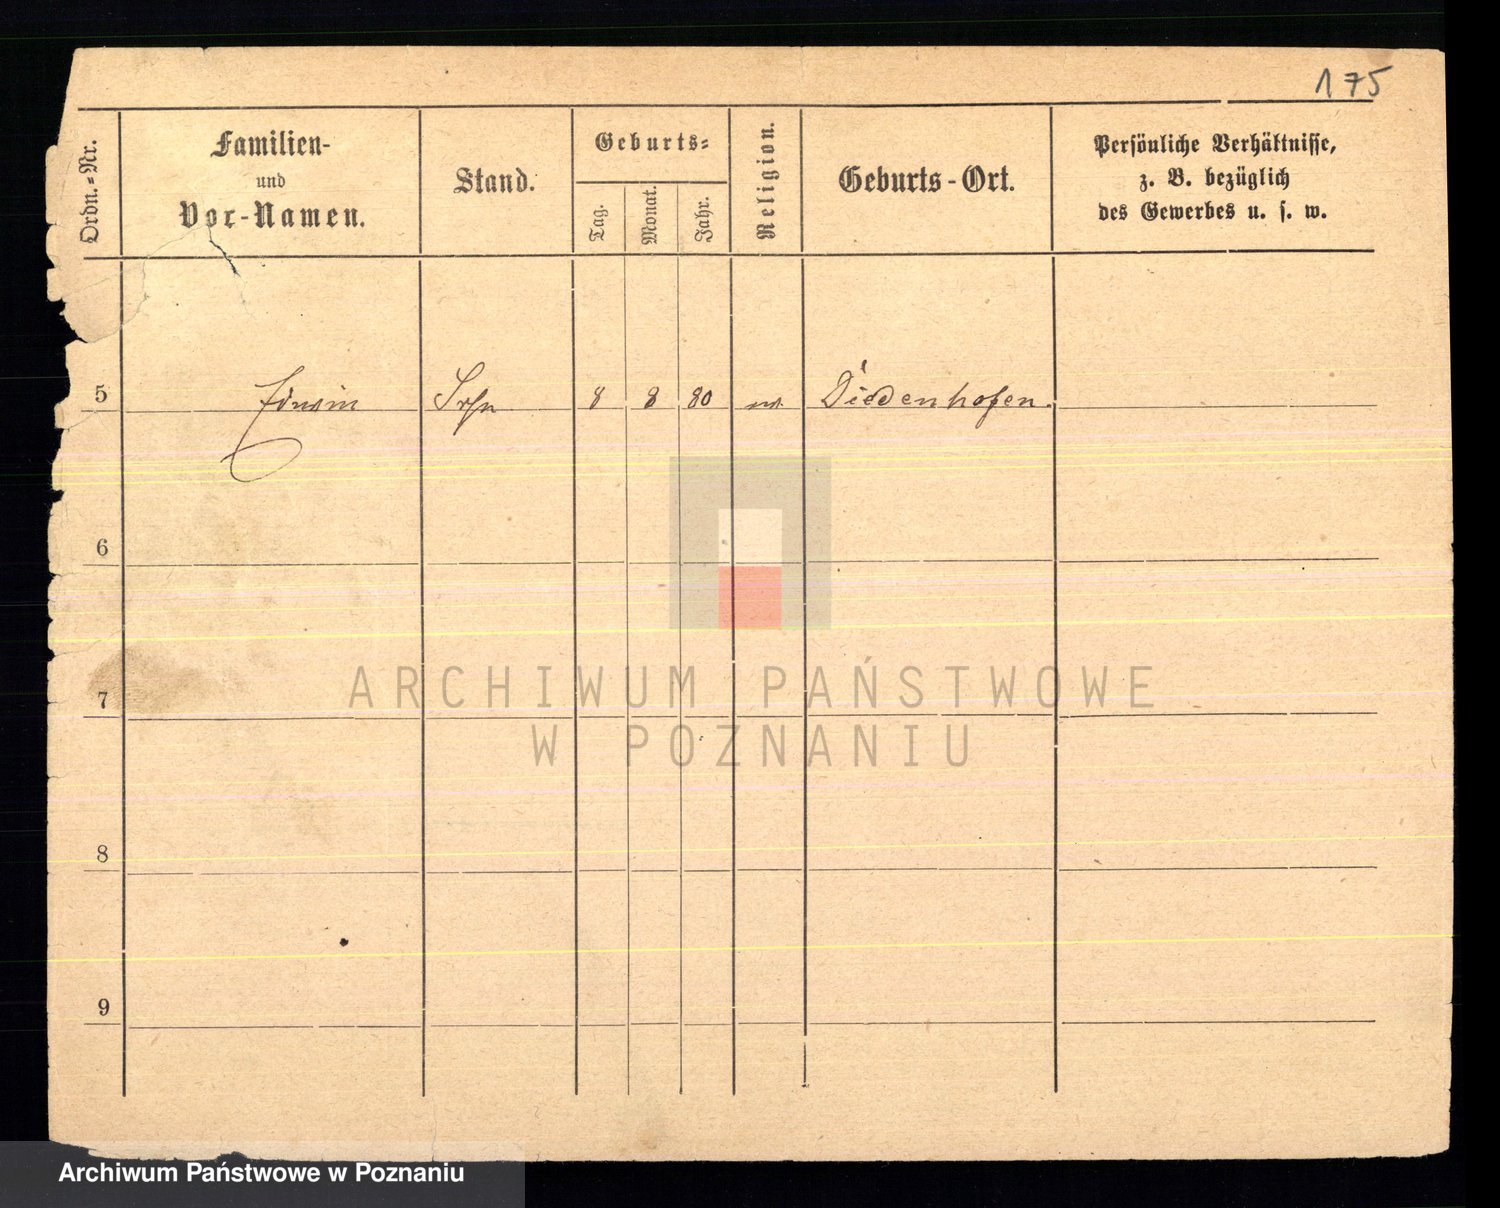 175
Ordn.-Nr.
Familien-
und
Vor-Namen.
Stand.
Geburts-
Tag.
Monat.
Jahr.
Religion.
Geburts-Ort.
Persönliche Verhältnisse,
z. B. bezüglich
des Gewerbes u. s. w.
5 Erwin Sohn 8 8 80 Diedenhofen.
6
7
ARCHIWUM PAŃSTWOWE
W POZNANIU
8
9
Archiwum Państwowe w Poznaniu